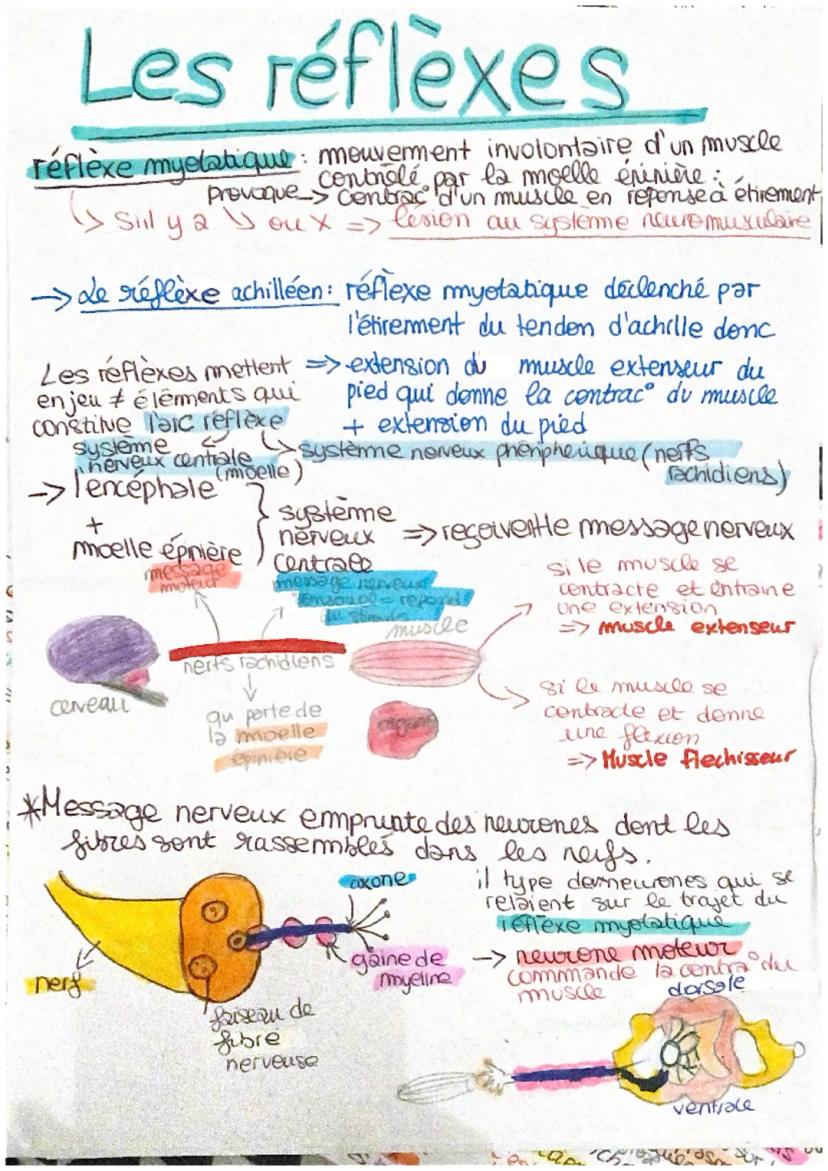 Les réflèxes
réflèxe myotatique : mouvement involontaire d'un muscle
contrôlé par la moelle épinière :
provoque -> contrac° d'un muscle en réponse à étirement
↳ S'il y a ↘ ou X => lésion au système neuromusculaire
-> Le réflèxe achilléen : réflexe myotatique déclenché par
l'étirement du tendon d'achille donc
=> extension du muscle extenseur du
pied qui donne la contrac° du muscle
+ extension du pied
Les réflèxes mettent
en jeu ≠ éléments qui
constitue l'arc réflèxe
système
nerveux centrale
(moelle)
système nerveux périphérique (nerfs
rachidiens)
-> l'encéphale
+
moelle épinière
système
nerveux
centrale
=> reçoivent le message nerveux
message
moteur
message nerveux
sensoriel = répond
au stimulus
muscle
cerveau
nerfs rachidiens
qu porte de
la moelle
épinière
organe
si le muscle se
contracte et entraine
une extension
=> muscle extenseur
si le muscle se
contracte et donne
une flexion
=> Muscle flechisseur
*Message nerveux emprunte des neurones dont les
fibres sont rassemblés dans les nerfs.
axone
gaine de
myeline
nerf
faiseau de
fibre
nerveuse
il type de neurones qui se
relaient sur le trajet du
réflèxe myotatique
-> neurone moteur
commande la contra° du
muscle
dorsale
ventrale